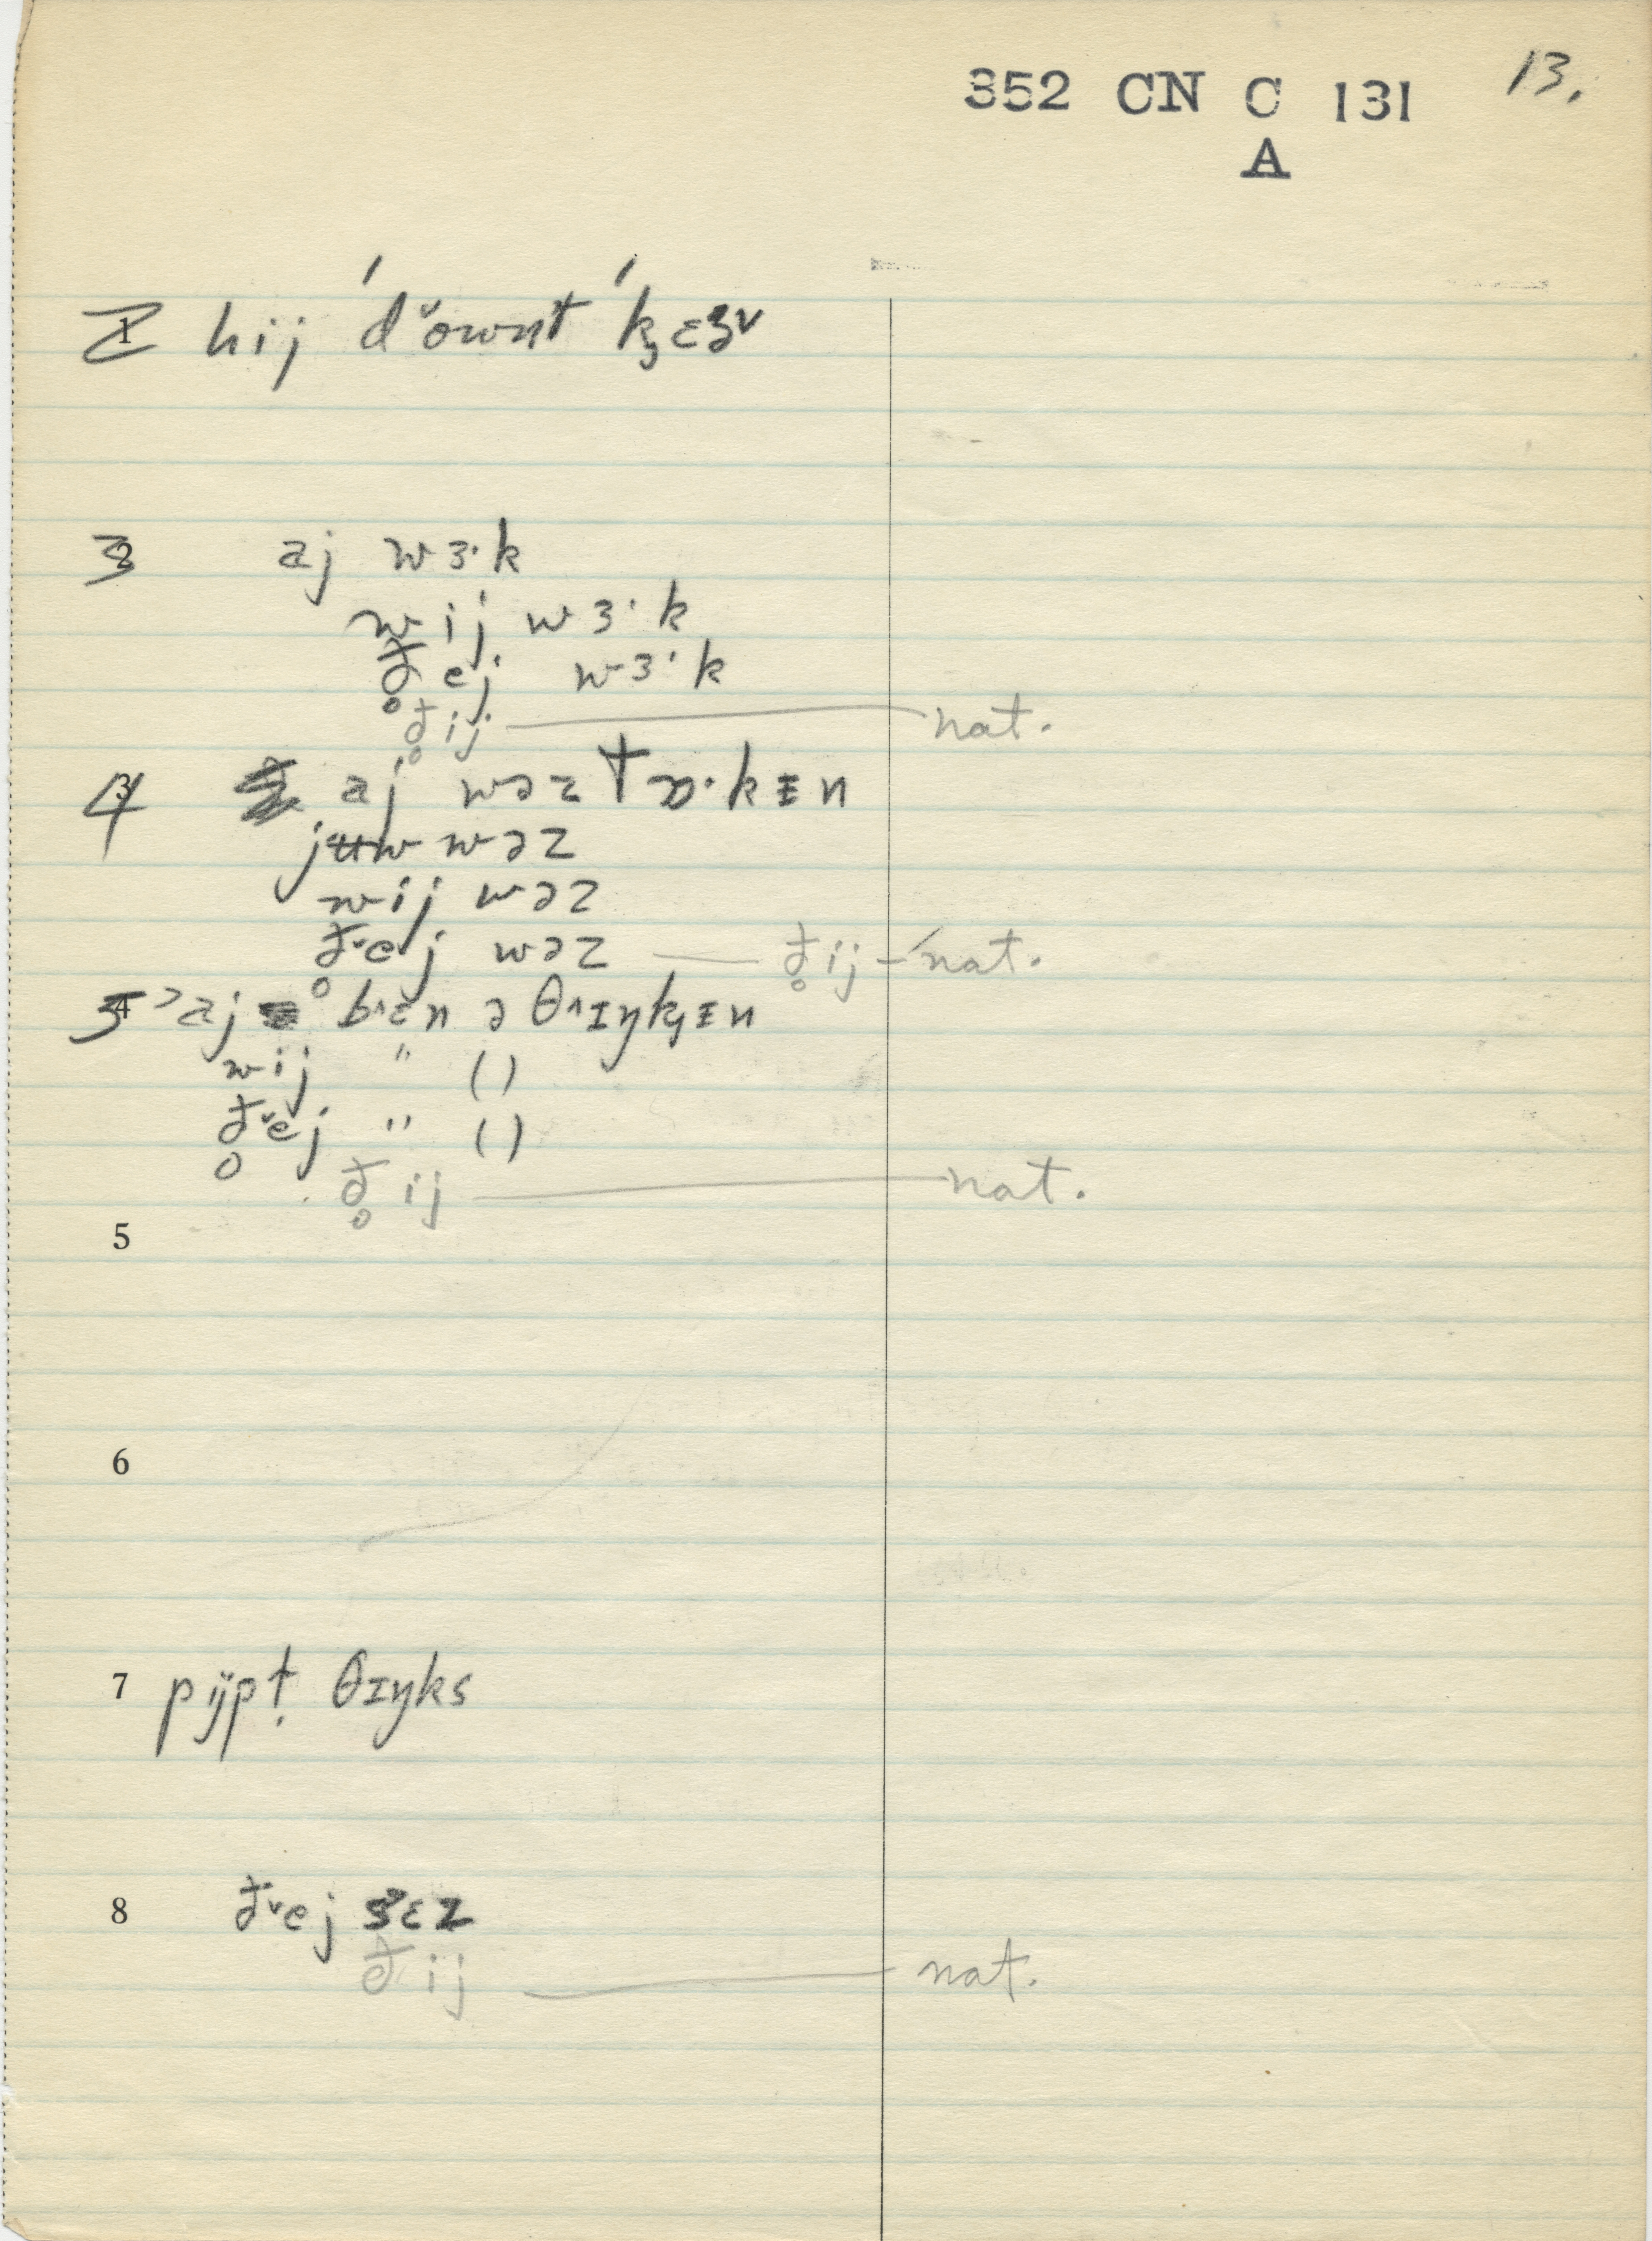 352 CN C 131 13.
A
2 hij ˈd˅ownt ˈk̡ɛɜ˅
3 aj wɜ·k
wij wɜ·k
ð̥ej wɜ·k
ð̥ij — nat.
4 aj wəz tɒ·kᵻn
jʉw wəz
wij wəz
ð̥˅ej wəz — ð̥ij — nat.
5 aj b˄ɛn ə θ˄ɪŋk̡ᵻn
wij " ( )
ð̥˅ej " ( )
ð̥ij — nat.
5
6
7 pijpt̩ θɪŋks
8 ð˅ej sɛz
ðij — nat.